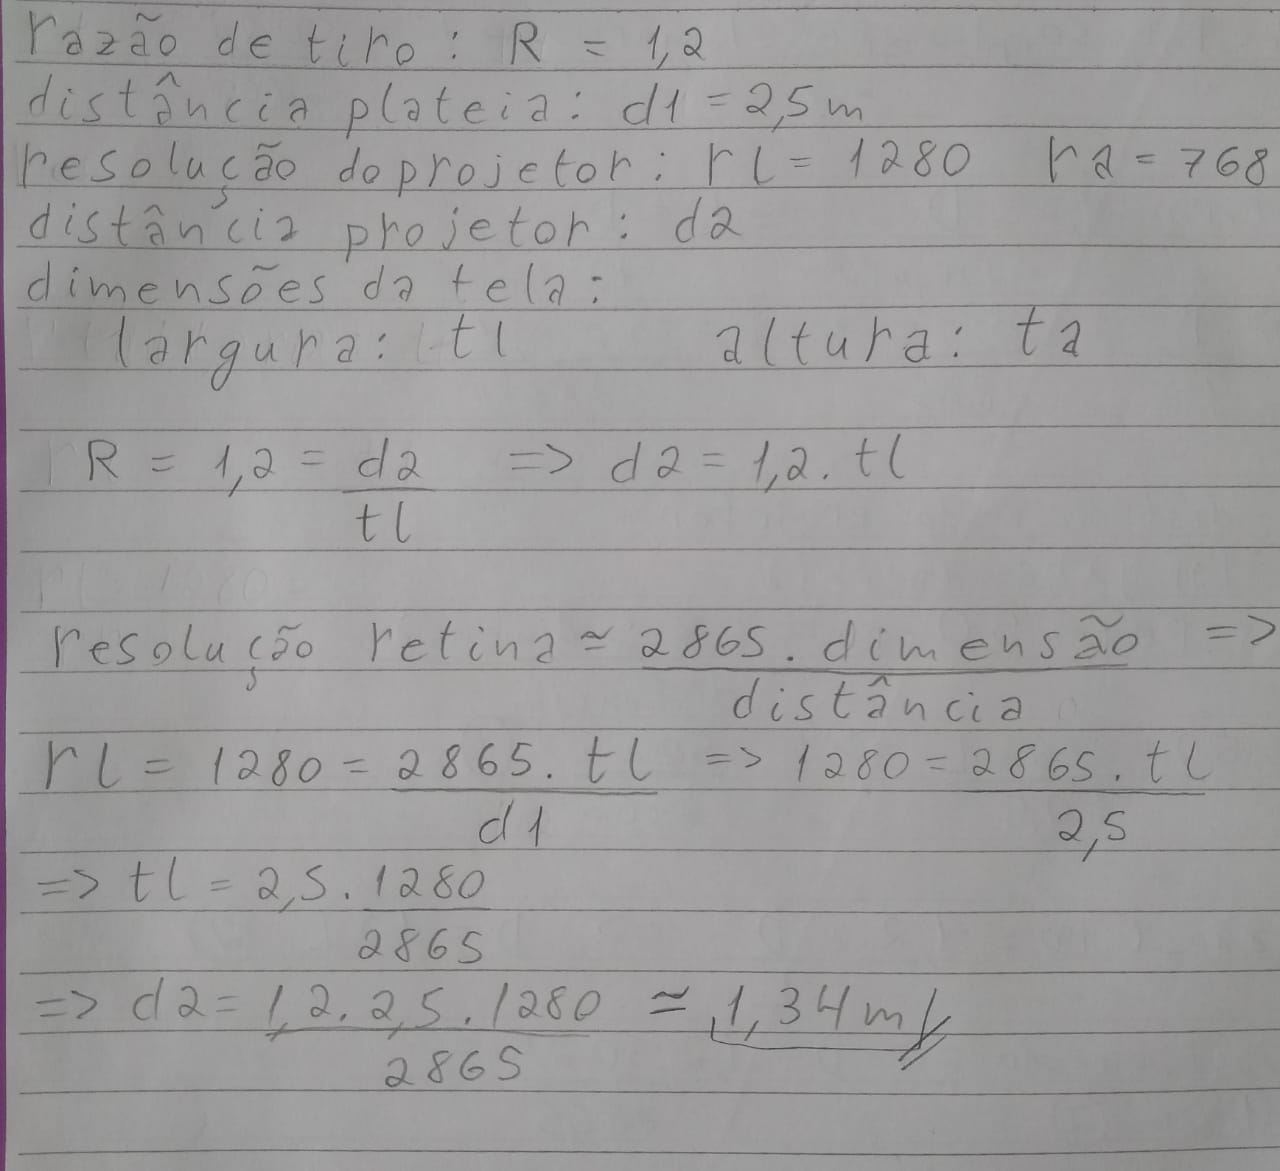 razão de tiro: R = 1,2
distância plateia: d1 = 2,5m
resolução do projetor: rl = 1280 ra = 768
distância projetor: d2
dimensões da tela:
largura: tl altura: ta
R = 1,2 = d2/tl => d2 = 1,2. tl
resolução retina ≃ 2865. dimensão/distância =>
rl = 1280 = 2865. tl/d1 => 1280 = 2865. tl/2,5
=> tl = 2,5. 1280/2865
=> d2 = 1,2. 2,5. 1280/2865 ≃ 1,34m